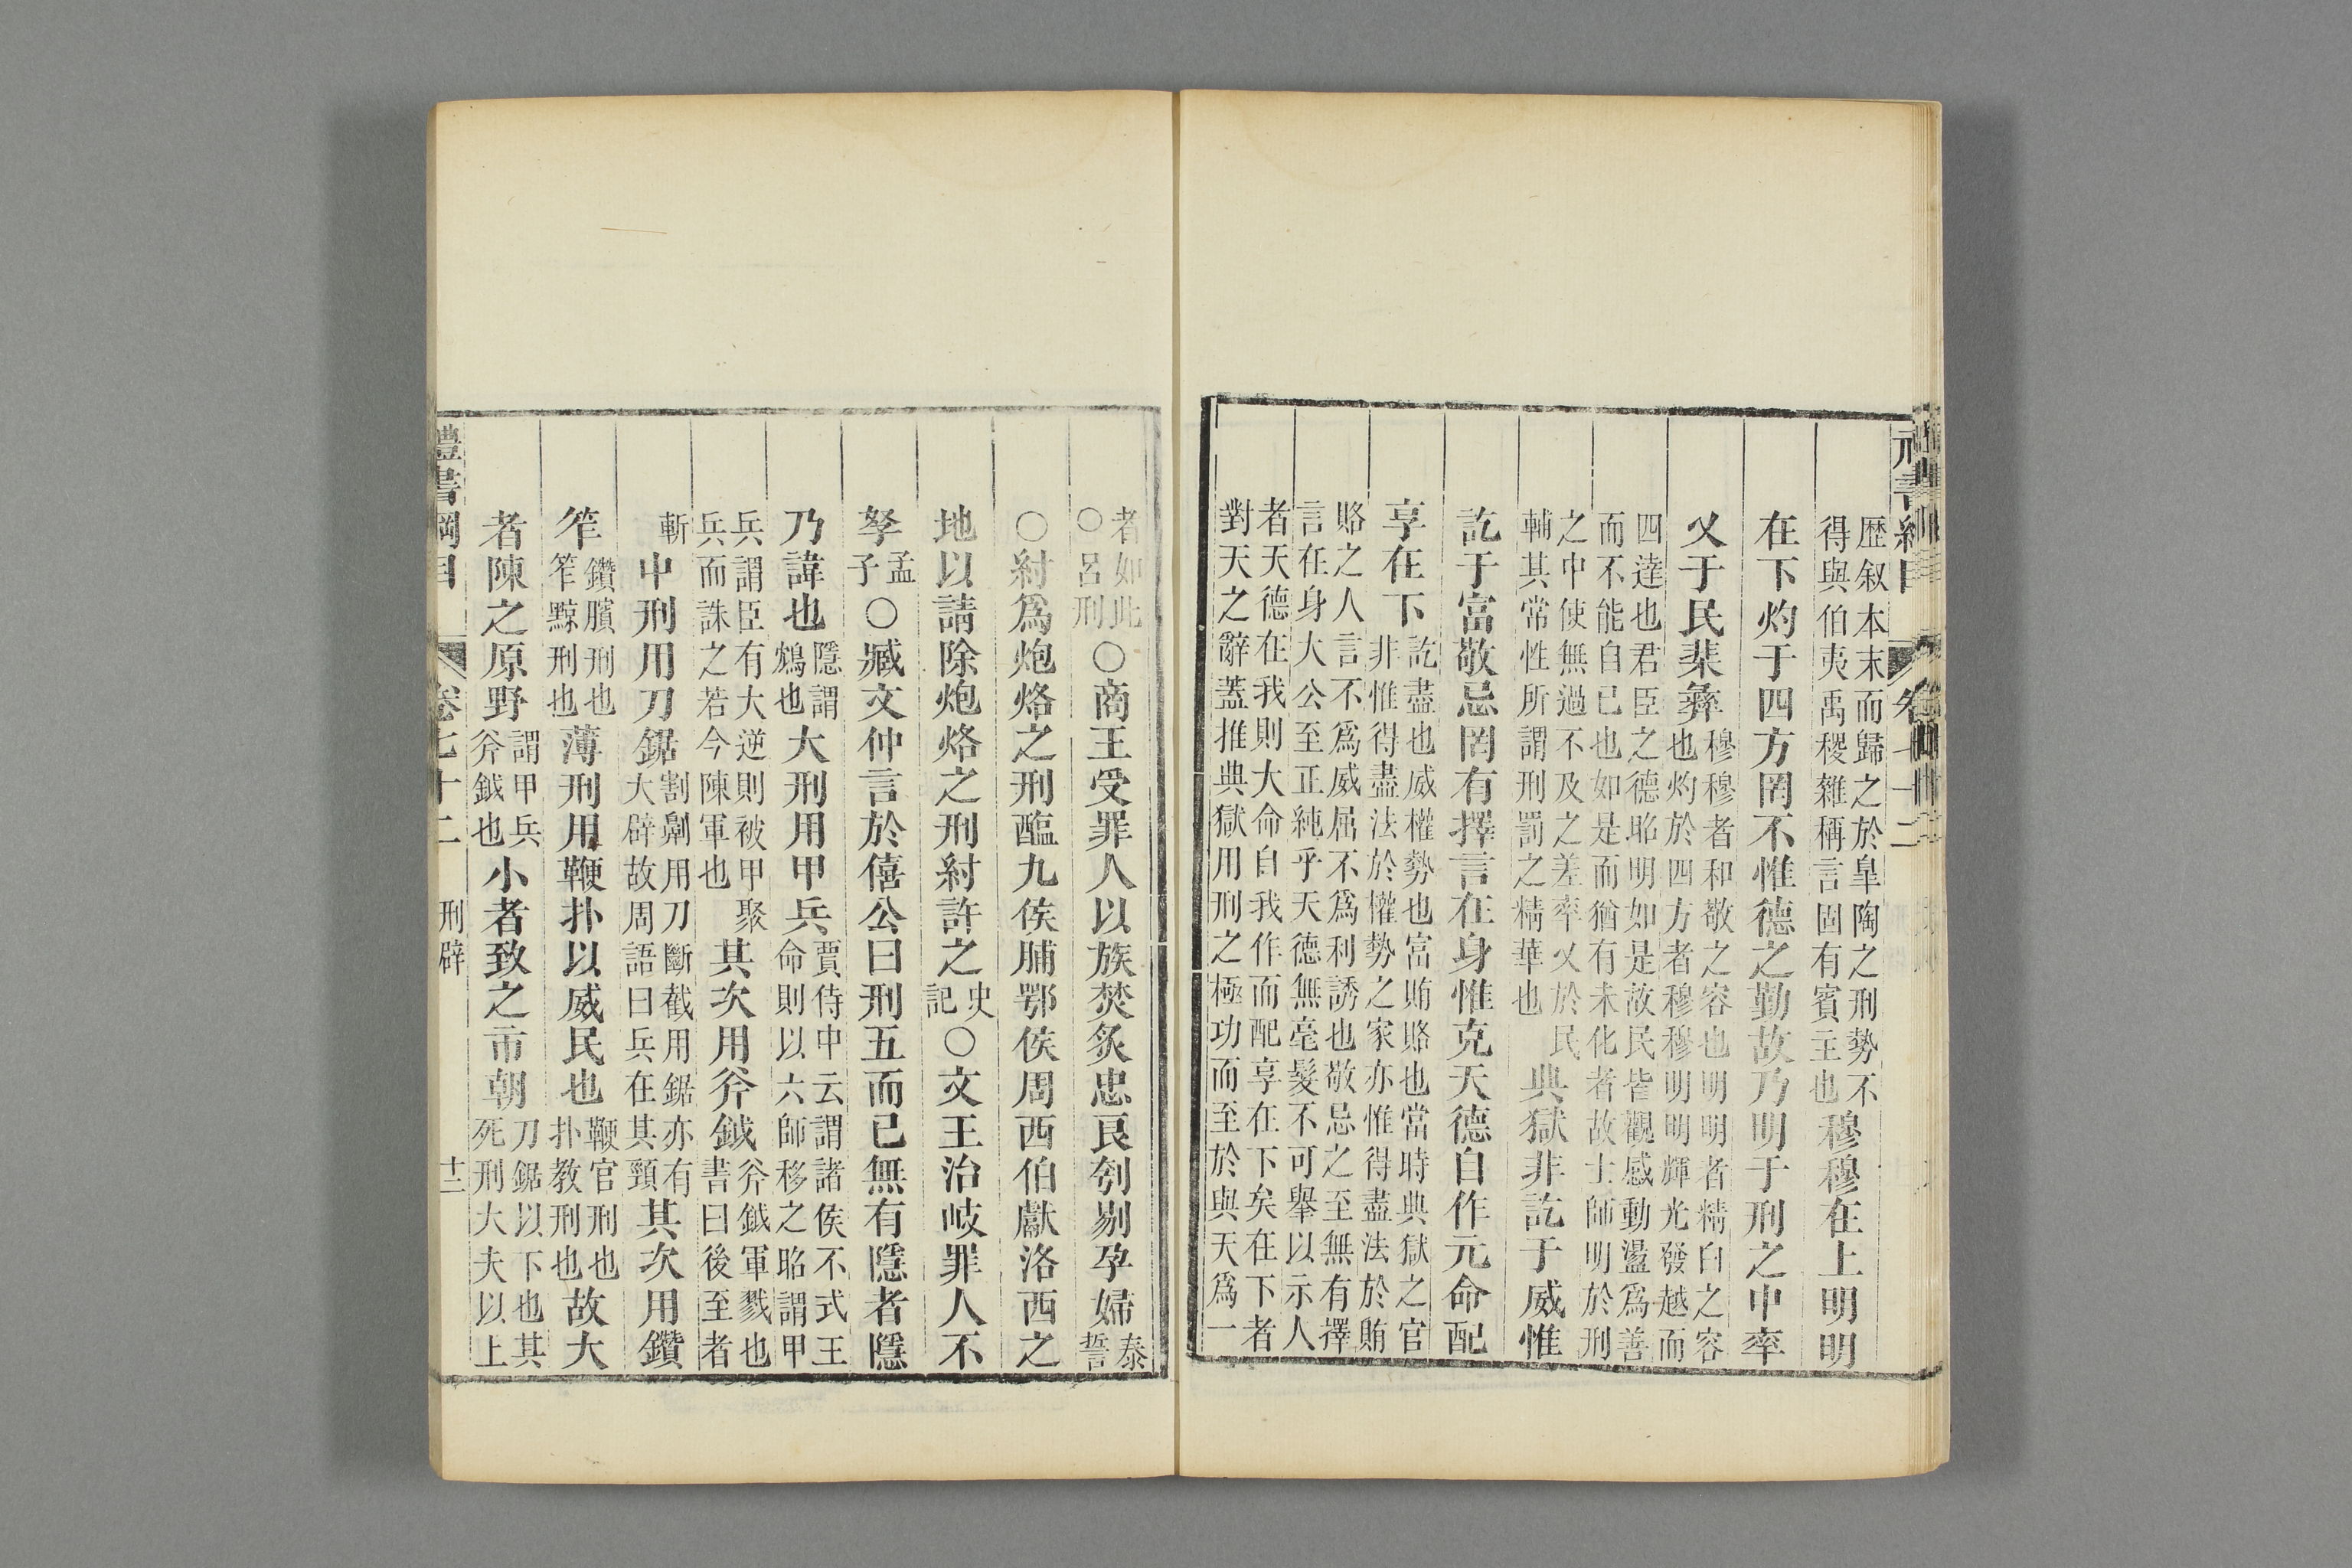 歷叙本末而歸之於皐陶之刑勢不
得與伯夷禹稷雜稱言固有賓主也
穆穆在上明明
在下灼于四方罔不惟德之勤故乃明于刑之中率
乂于民棐彝
穆穆者和敬之容也明明者精白之容
也灼於四方者穆穆明明輝光發越而
四達也君臣之德昭明如是故民皆觀感動盪爲善
而不能自已也如是而猶有未化者故士師明於刑
之中使無過不及之差率乂於民
輔其常性所謂刑罰之精華也
典獄非訖于威惟
訖于富敬忌罔有擇言在身惟克天德自作元命配
享在下
訖盡也威權勢也富賄賂也當時典獄之官
非惟得盡法於權勢之家亦惟得盡法於賄
賂之人言不爲威屈不爲利誘也敬忌之至無有擇
言在身大公至正純乎天德無毫髮不可舉以示人
者天德在我則大命自我作而配享在下矣在下者
對天之辭蓋推典獄用刑之極功而至於與天爲一
者如此
○呂刑
○商王受罪人以族焚炙忠良刳剔孕婦
泰
誓
○紂爲炮烙之刑醢九侯脯鄂侯周西伯獻洛西之
地以請除炮烙之刑紂許之
史
記
○文王治岐罪人不
孥
孟
子
○臧文仲言於僖公曰刑五而已無有隱者隱
乃諱也
隱謂
鴆也
大刑用甲兵
賈侍中云謂諸侯不式王
命則以六師移之昭謂甲
兵謂臣有大逆則被甲聚
兵而誅之若今陳軍也
其次用斧鉞
斧鉞軍戮也
書曰後至者
斬
中刑用刀鋸
割劓用刀斷截用鋸亦有
大辟故周語曰兵在其頸
其次用鑽
笮
鑽臏刑也
笮黥刑也
薄刑用鞭扑以威民也
鞭官刑也
扑教刑也
故大
者陳之原野
謂甲兵
斧鉞也
小者致之市朝
刀鋸以下也其
死刑大夫以上
禮書綱目
卷七十二
刑辟
十二